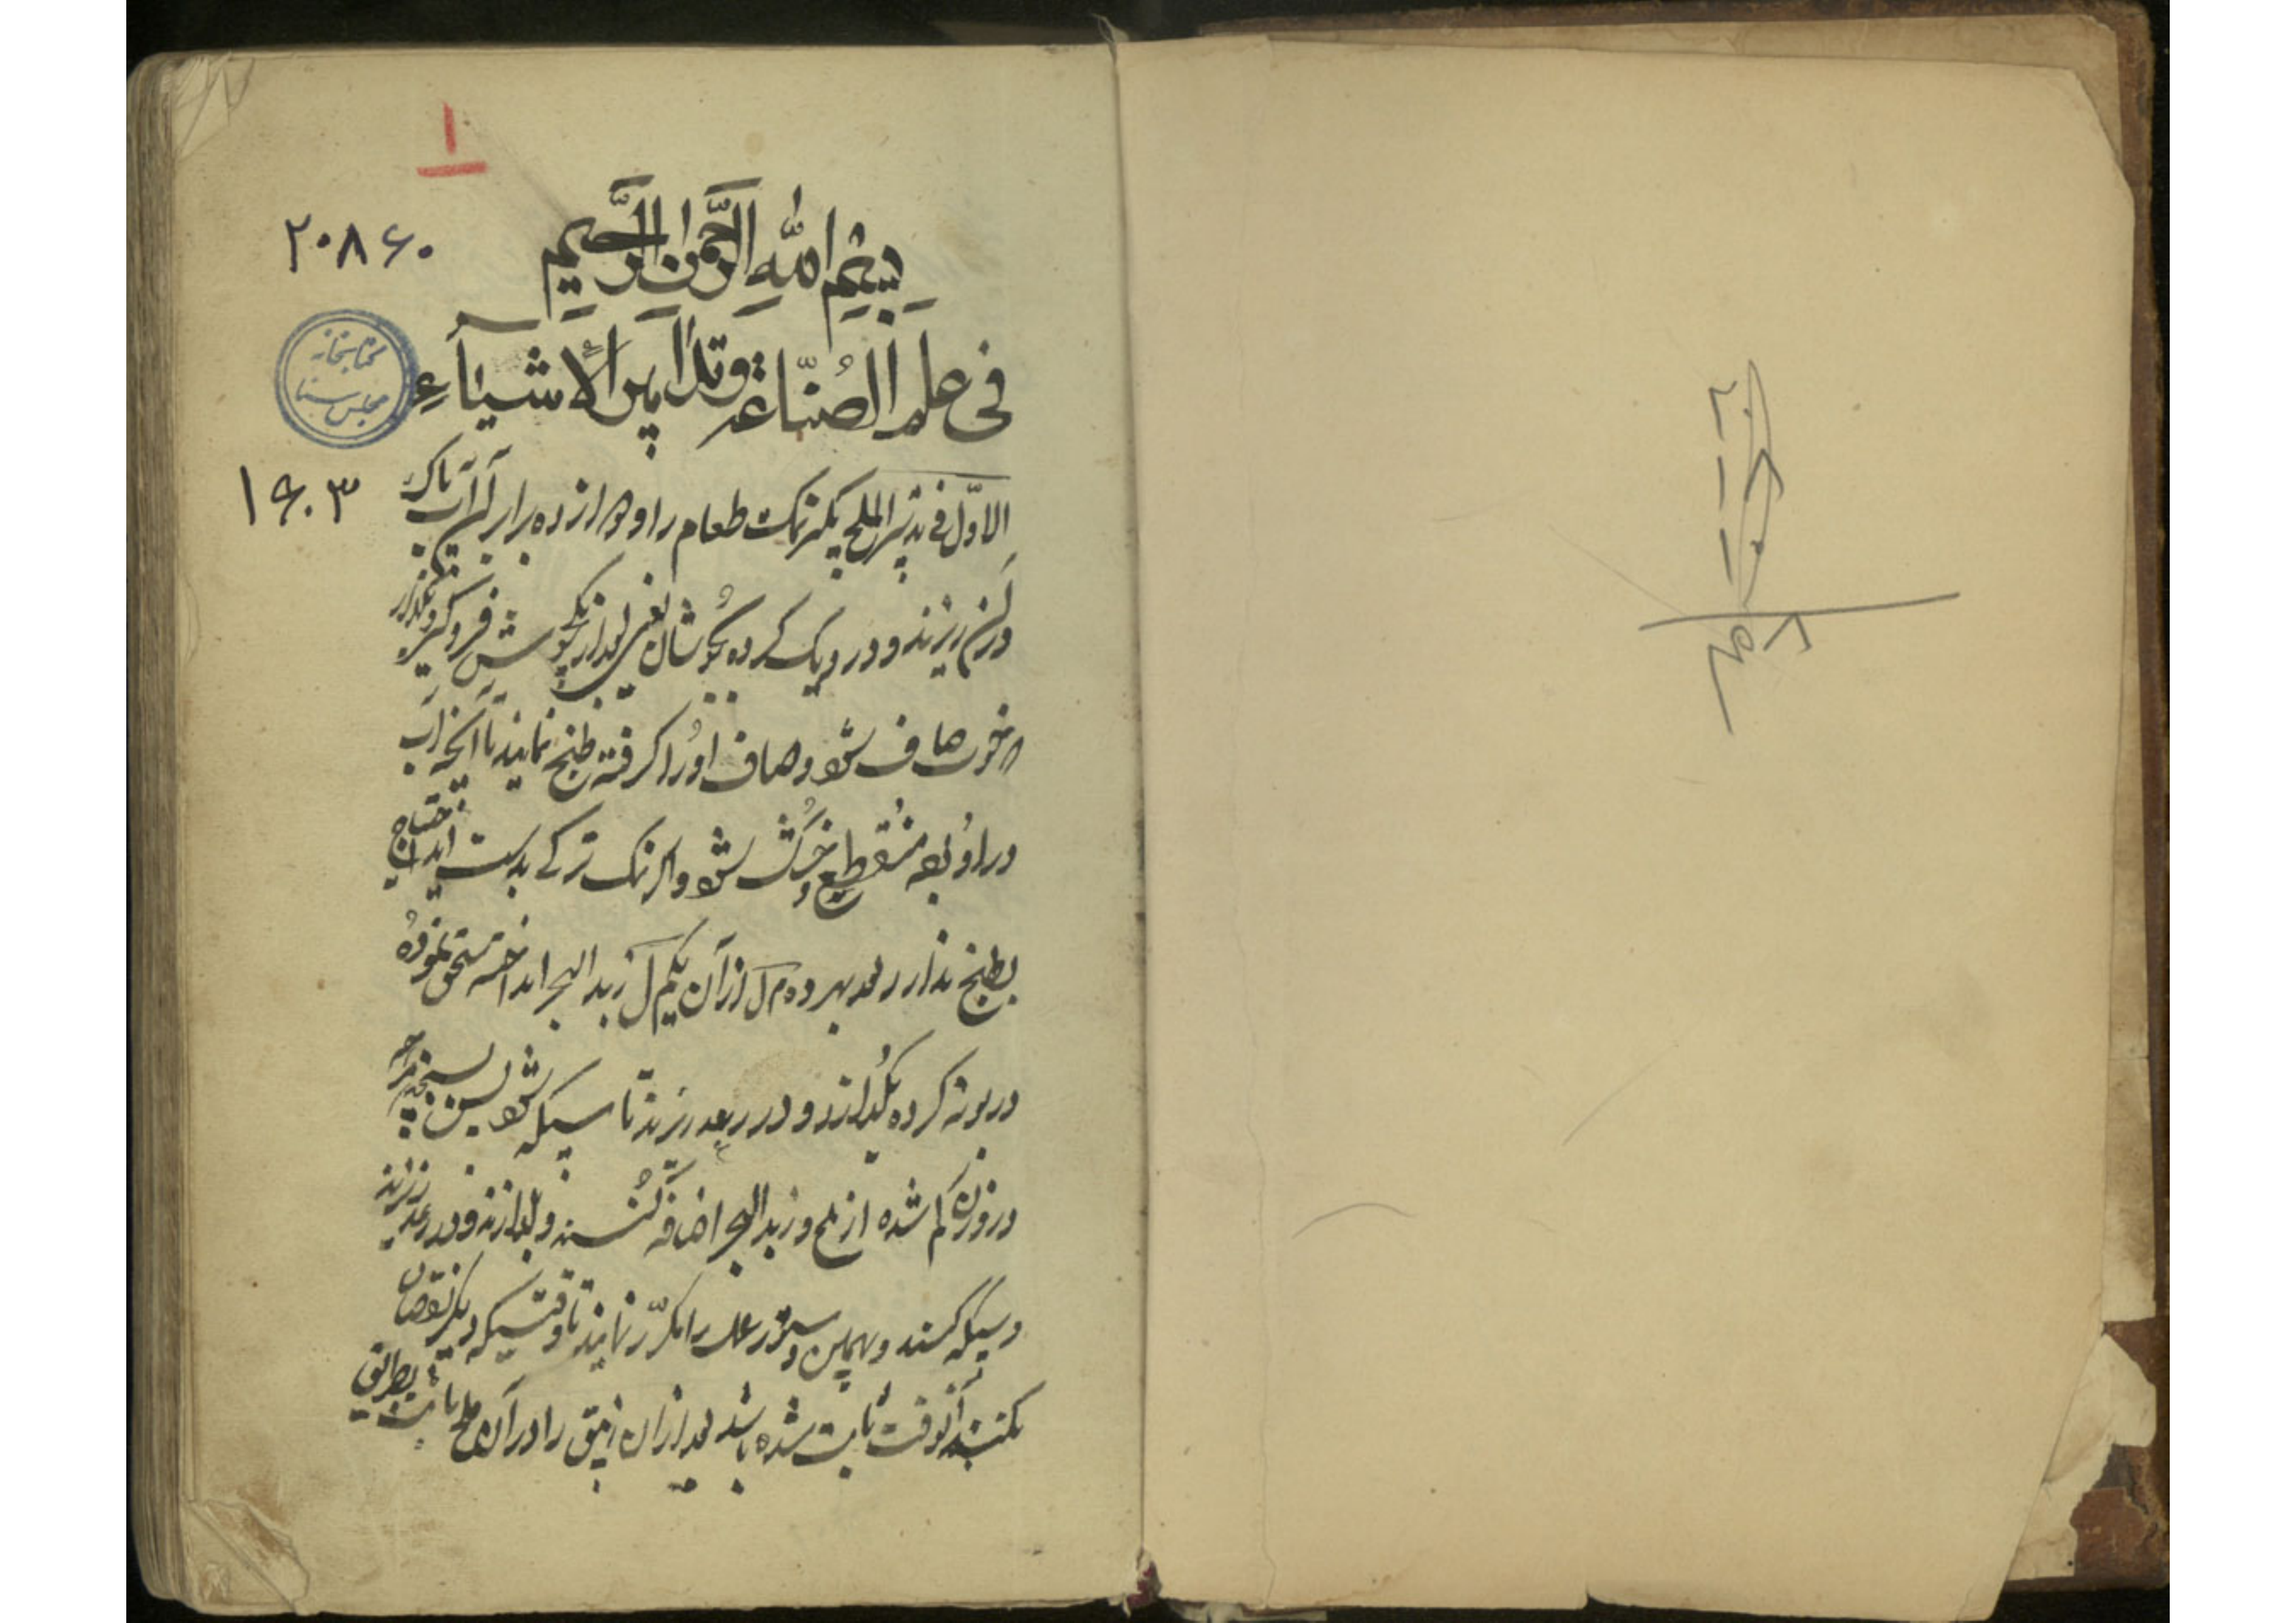 ۱
۲۰۸۶۰
بِسْمِ اللهِ الرَّحْمٰنِ الرَّحِيمِ
فی علم الصُنّاعة وتدابیر الأشیآءِ
کتابخانه
مجلس سنا
۱۶۰۳
الاوّل فی تدبیر الملح بگیر نمک طعام را و ده برابر آن آب پاک
در آن ریزند و در دیک کرده بجُوشان بعد از یکجوش فرو گیر و بگذار
خوب صاف شود و صاف اورا گرفته طبخ نمایند تا آنچه آب
در او بوده مُنقطع و خُشک شود و اگر نمک ترکی بدست آید احتیاج
بطبخ ندارد بعد بهر ده مثقال از آن یکمثقال زبد البحر انداخته سحق نموده
در بوته کرده بگدازند و در ریزند تا سبیکه شود پس بسنجند هر چه
در وزن کم شده از ملح و زبد البحر اضافه کُنند و بگدازند و در ریزند
و سبیکه کنند و بهمین دستور عمل را مکرّر نمایند تا وقتیکه دیگر نقصان
نکند آنوقت ثابت شده باشد بعد از ان زیبق را در آن ملح ثابت بطریق